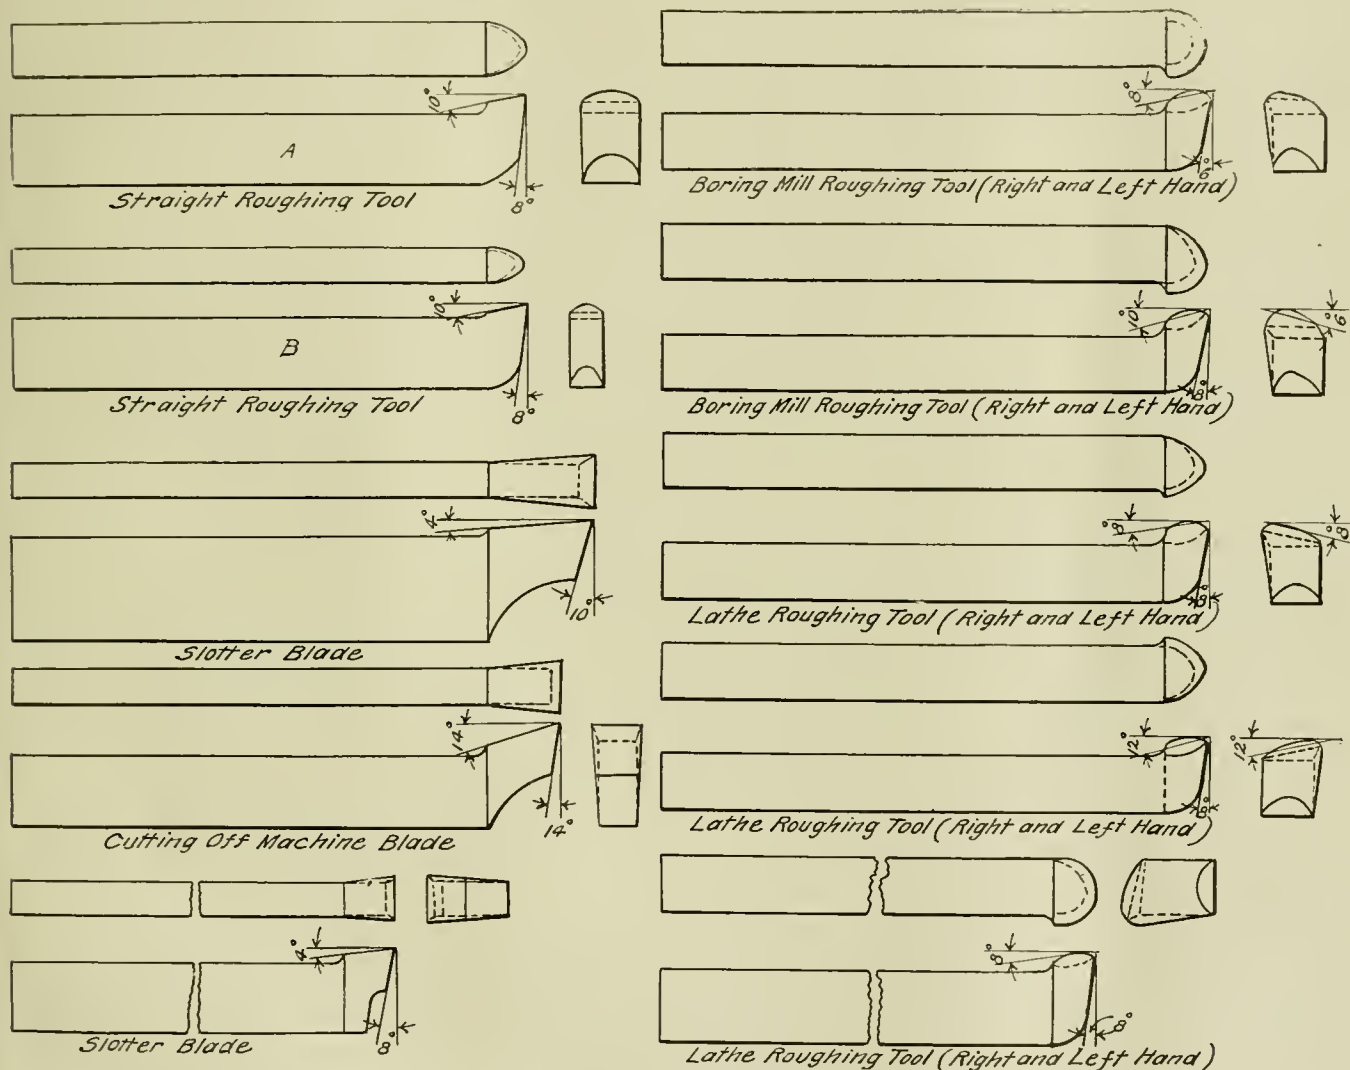 10°
A
8°
Straight Roughing Tool
10°
B
8°
Straight Roughing Tool
4°
10°
Slotter Blade
14°
14°
Cutting Off Machine Blade
4°
8°
Slotter Blade
8°
6°
Boring Mill Roughing Tool (Right and Left Hand)
10°
6°
8°
Boring Mill Roughing Tool (Right and Left Hand)
8°
8°
8°
Lathe Roughing Tool (Right and Left Hand)
12°
12°
8°
Lathe Roughing Tool (Right and Left Hand)
8°
8°
Lathe Roughing Tool (Right and Left Hand)